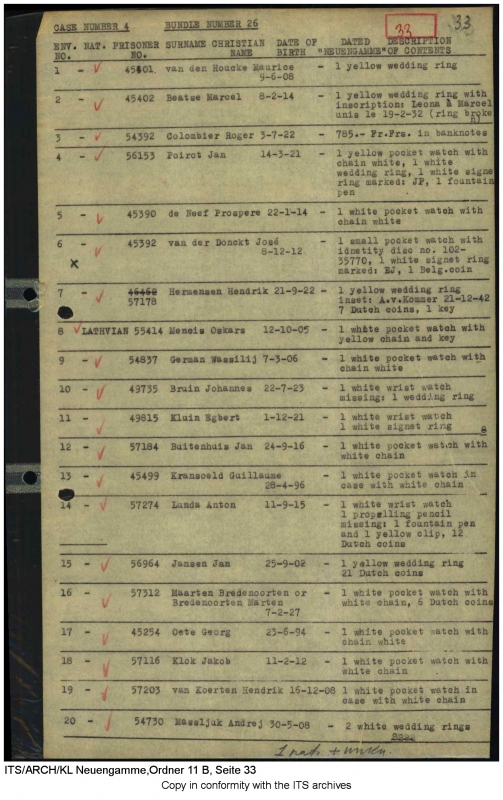 33 33
CASE NUMBER 4 BUNDLE NUMBER 26
ENV. NAT. PRISONER SURNAME CHRISTIAN DATE OF DATED DESCRIPTION
NO. NO. NAME BIRTH "NEUENGAMME" OF CONTENTS
1 - 45401 van den Houcke Maurice - 1 yellow wedding ring
9-6-08
2 - 45402 Beatse Marcel 8-2-14 - 1 yellow wedding ring with
inscription: Leona & Marcel
unis le 19-2-32 (ring broke
n)
3 - 54392 Colombier Roger 3-7-22 - 785.- Fr.Frs. in banknotes
4 - 56153 Poirot Jan 14-3-21 - 1 yellow pocket watch with
chain white, 1 white
wedding ring, 1 white signe
ring marked: JP, 1 fountain
pen
5 - 45390 de Neef Prospere 22-1-14 - 1 white pocket watch with
chain white
6 - 45392 van der Donckt José - 1 small pocket watch with
8-12-12 idnetity disc no. 102-
x 35770, 1 white signet ring
marked: EJ, 1 Belg.coin
7 - Hermensen Hendrik 21-9-22 - 1 yellow wedding ring
57178 inset: A.v.Kommer 21-12-42
7 Dutch coins, 1 key
8 LATHVIAN 55414 Mencis Oskars 12-10-05 - 1 white pocket watch with
yellow chain and key
9 - 54837 German Wassilij 7-3-06 - 1 white pocket watch with
chain white
10 - 49735 Bruin Johannes 22-7-23 - 1 white wrist watch
missing: 1 wedding ring
11 - 49815 Kluin Egbert 1-12-21 - 1 white wrist watch
1 white signet ring
8
12 - 57184 Buitenhuis Jan 24-9-16 - 1 white pocket watch with
white chain
13 - 45499 Kransveld Guillaume - 1 white pocket watch in
28-4-96 case with white chain
14 - 57274 Lunda Anton 11-9-15 - 1 white wrist watch
1 propelling pencil
missing: 1 fountain pen
and 1 yellow clip, 12
Dutch coins
15 - 56964 Jansen Jan 25-9-02 - 1 yellow wedding ring
21 Dutch coins
16 - 57312 Maarten Bredenoorten or - 1 white pocket watch with
Bredenoorten Marten white chain, 6 Dutch coins
7-2-27
17 - 45254 Oete Georg 23-6-94 - 1 white pocket watch with
chain white
18 - 57116 Klok Jakob 11-2-12 - 1 white pocket watch with
white chain
19 - 57203 van Koerten Hendrik 16-12-08 1 white pocket watch in
case with white chain
20 - 54730 Massljuk Andrej 30-5-08 - 2 white wedding rings
ITS/ARCH/KL Neuengamme,Ordner 11 B, Seite 33
Copy in conformity with the ITS archives